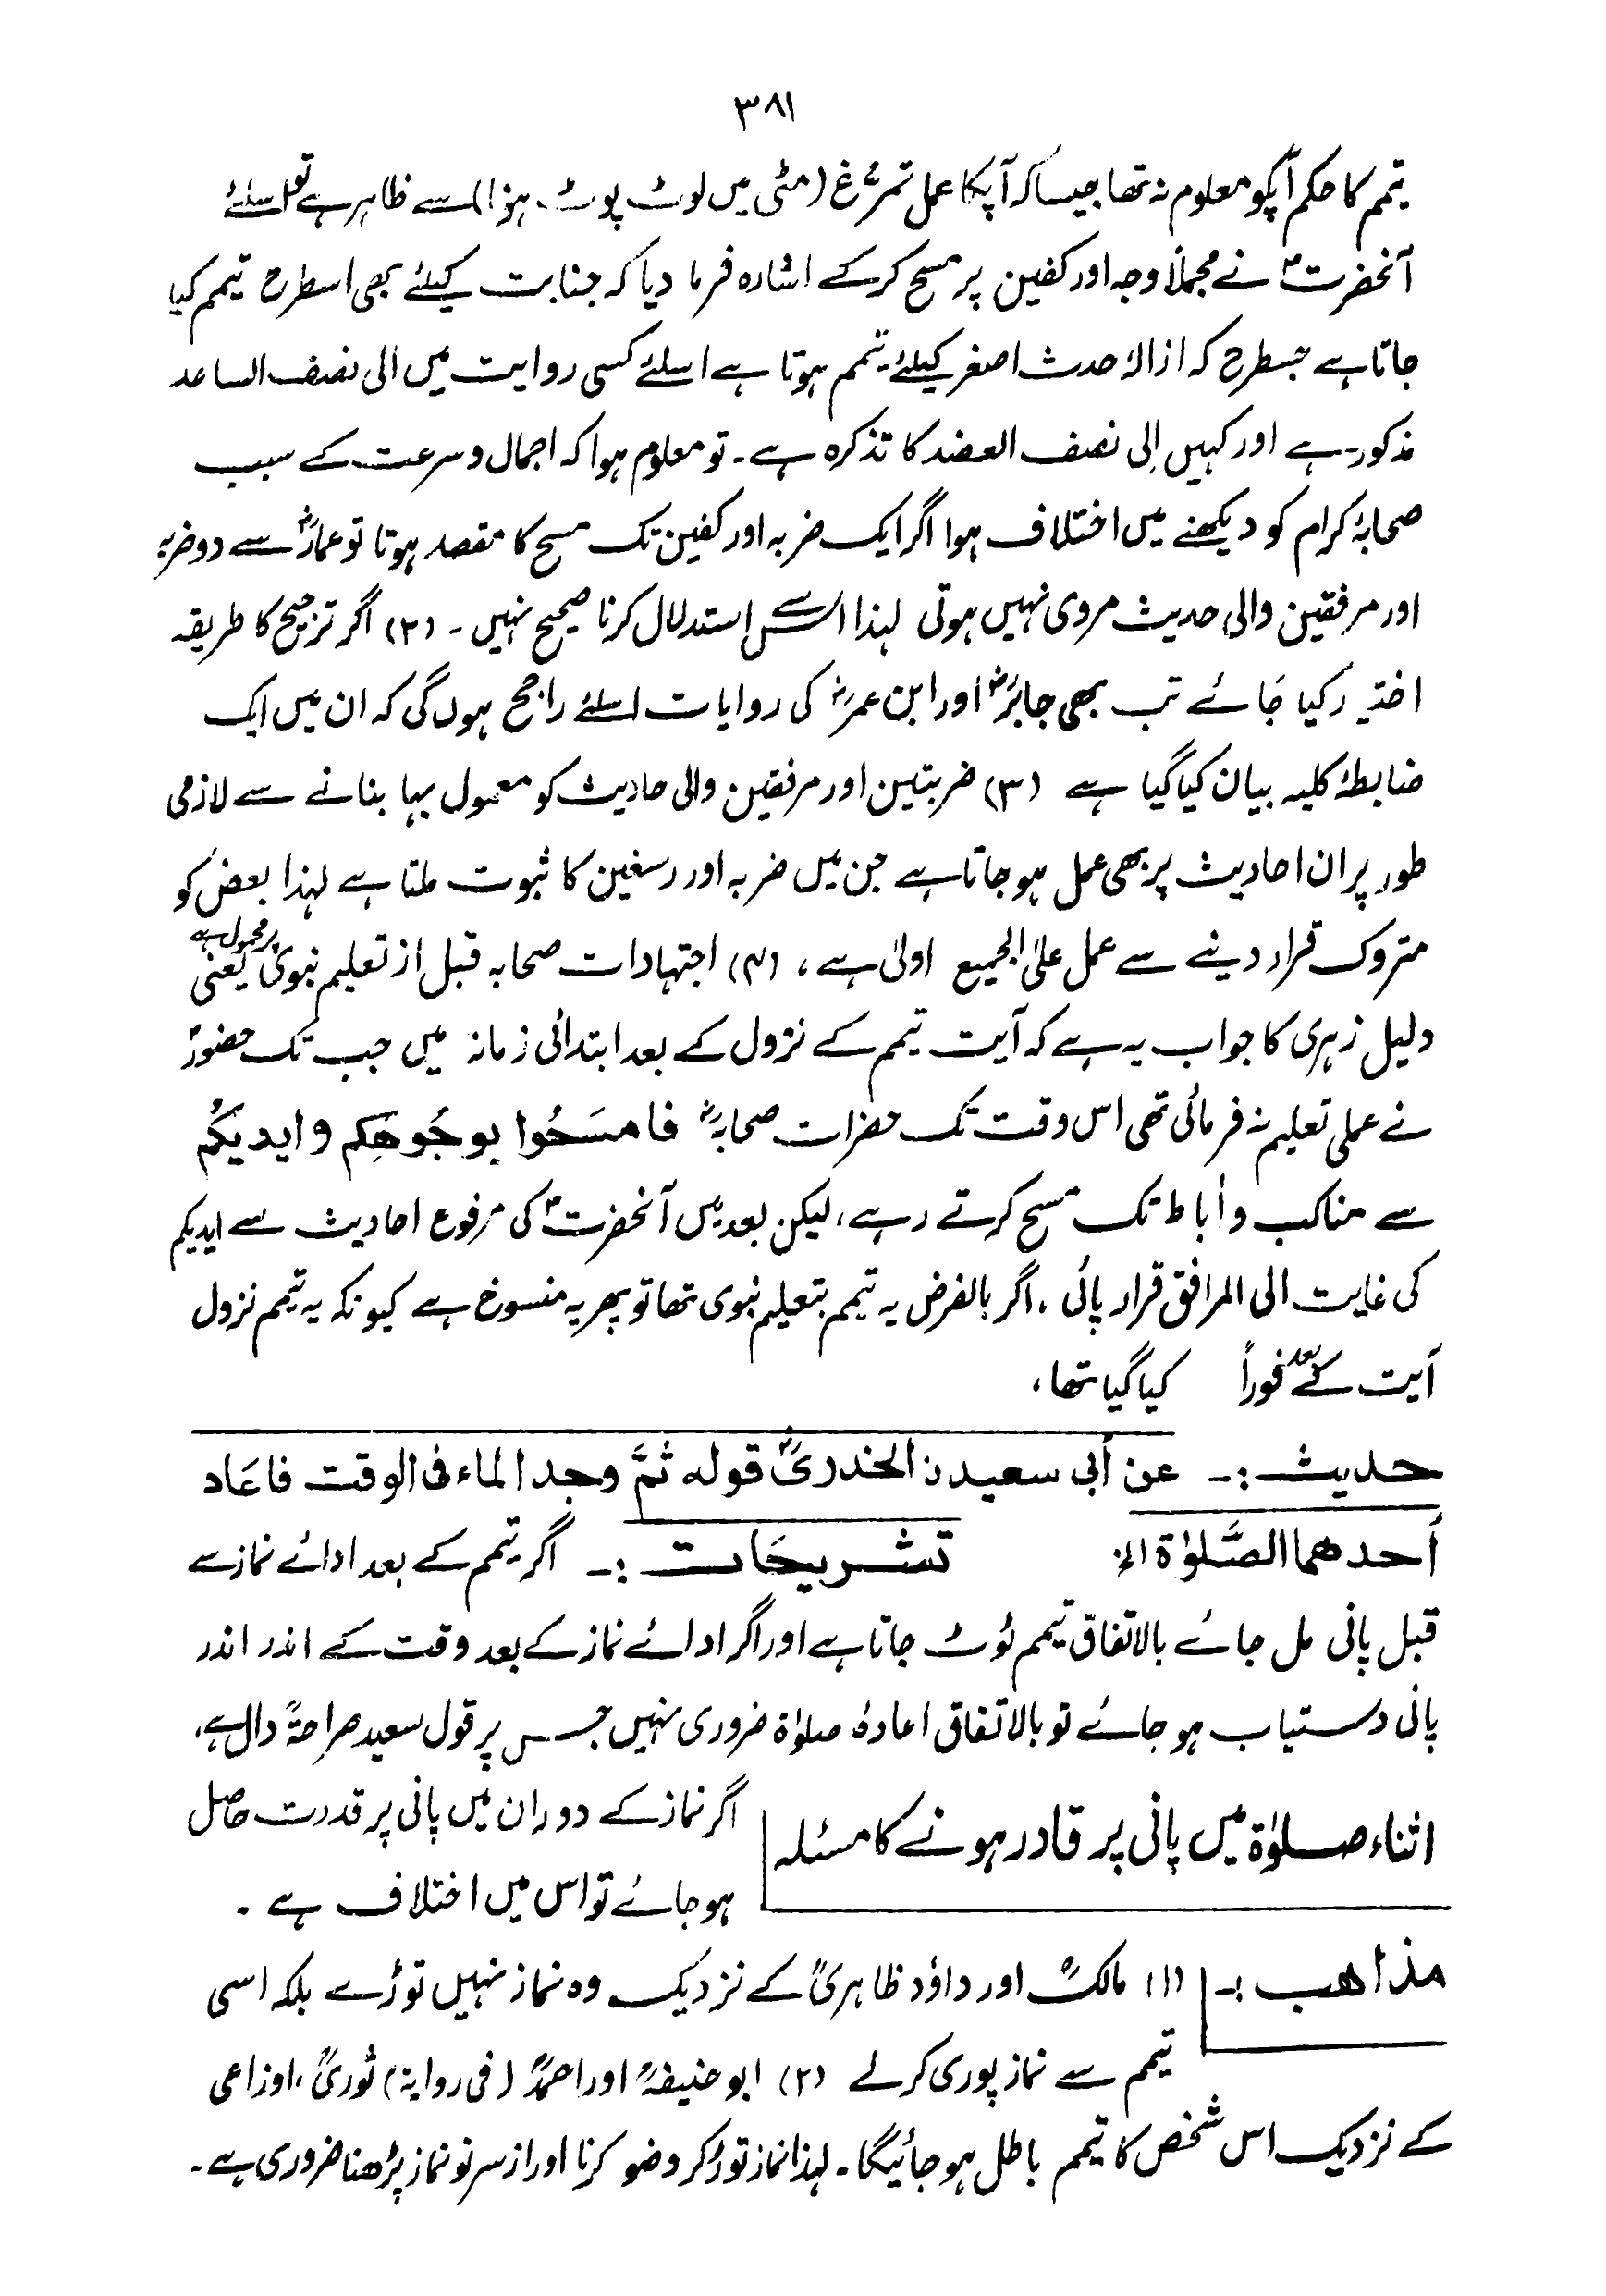 ۳۸۱
تیمم کا حکم آپکو معلوم نہ تھا جیسا کہ آپکا عمل تمرّغ (مٹی میں لوٹ پوٹ ہونا) سے ظاہر ہے تو اسلئے
آنحضرتؐ نے مجملاً وجہ اور کفین پر مسح کرکے اشارہ فرما دیا کہ جنابت کیلئے بھی اسطرح تیمم کیا
جاتا ہے جسطرح کہ ازالۂ حدث اصغر کیلئے تیمم ہوتا ہے اسلئے کسی روایت میں الی نصف الساعد
مذکور ہے اور کہیں اِلی نصف العضد کا تذکرہ ہے۔ تو معلوم ہوا کہ اجمال و سرعت کے سبب
صحابۂ کرام کو دیکھنے میں اختلاف ہوا اگر ایک ضربہ اور کفین تک مسح کا مقصد ہوتا تو عمارؓ سے دو ضربہ
اور مرفقین والی حدیث مروی نہیں ہوتی لہذا اس سے استدلال کرنا صحیح نہیں۔ (۲) اگر ترجیح کا طریقہ
اختیار کیا جائے تب بھی جابرؓ اور ابن عمرؓ کی روایات اسلئے راجح ہوں گی کہ ان میں ایک
ضابطۂ کلیہ بیان کیا گیا ہے (۳) ضربتین اور مرفقین والی حادیث کو معمول بہا بنانے سے لازمی
طور پر ان احادیث پر بھی عمل ہو جاتا ہے جن میں ضربہ اور رسغین کا ثبوت ملتا ہے لہذا بعض کو
متروک قرار دینے سے عمل علیٰ الجمیع اولیٰ ہے، (۴) اجتہادات صحابہ قبل از تعلیم نبوی پر محمول ہے یعنی
دلیل زہری کا جواب یہ ہے کہ آیت تیمم کے نزول کے بعد ابتدائی زمانہ میں جب تک حضورؐ
نے عملی تعلیم نہ فرمائی تھی اس وقت تک حضرات صحابہؓ فامسَحُوا بوجُوھِکم وایدیکُم
سے مناکب واٰباط تک مسح کرتے رہے، لیکن بعد میں آنحضرتؐ کی مرفوع احادیث سے ایدیکم
کی غایت الی المرافق قرار پائی، اگر بالفرض یہ تیمم بتعلیم نبوی تھا تو پھر یہ منسوخ ہے کیونکہ یہ تیمم نزول
آیت کے بعد فوراً کیا گیا تھا،
حدیث :۔ عن أبی سعیدن الخدریؓ قولہ ثمَّ وجد الماء فی الوقت فاعَاد
أحدھما الصَّلوٰۃ الخ تشریحَات :۔ اگر تیمم کے بعد ادائے نماز سے
قبل پانی مل جائے بالاتفاق تیمم ٹوٹ جاتا ہے اور اگر ادائے نماز کے بعد وقت کے اندر اندر
پانی دستیاب ہو جائے تو بالاتفاق اعادۂ صلوٰۃ ضروری نہیں جس پر قول سعید صراحۃً دال ہے،
اثناء صلوٰۃ میں پانی پر قادر ہونے کا مسئلہ
اگر نماز کے دوران میں پانی پر قدرت حاصل
ہو جائے تو اس میں اختلاف ہے۔
مذاھب :۔ (۱) مالکؒ اور داؤد ظاہریؒ کے نزدیک وہ نماز نہیں توڑے بلکہ اسی
تیمم سے نماز پوری کرلے (۲) ابو حنیفہؒ اور احمدؒ (فی روایۃ) ثوریؒ، اوزاعی
کے نزدیک اس شخص کا تیمم باطل ہو جائیگا۔ لہذا نماز توڑ کر وضو کرنا اور از سر نو نماز پڑھنا ضروری ہے۔